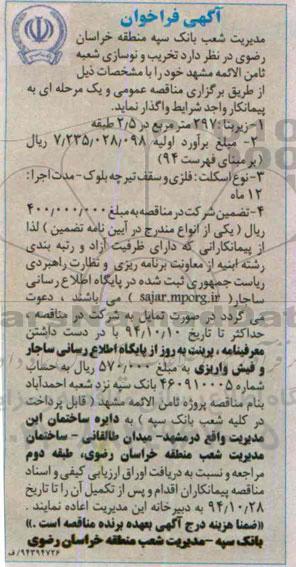 آگهی فراخوان
مدیریت شعب بانک سپه منطقه خراسان
رضوی در نظر دارد تخریب و نوسازی شعبه
ثامن الائمه مشهد خود را با مشخصات ذیل
از طریق برگزاری مناقصه عمومی و یک مرحله ای به
پیمانکار واجد شرایط واگذار نماید.
۱- زیربنا: ۲۹۷ متر مربع در ۲٫۵ طبقه
۲- مبلغ برآورد اولیه: ۷/۲۳۵/۰۲۸/۰۹۸ ریال
(بر مبنای فهرست ۹۴)
۳- نوع اسکلت: فلزی و سقف تیرچه بلوک - مدت اجرا:
۱۲ ماه
۴- تضمین شرکت در مناقصه به مبلغ ۴۰۰/۰۰۰/۰۰۰
ریال (یکی از انواع مندرج در آیین نامه تضمین) لذا
از پیمانکارانی که دارای ظرفیت آزاد و رتبه بندی
رشته ابنیه از معاونت برنامه ریزی و نظارت راهبردی
ریاست جمهوری ثبت شده در پایگاه اطلاع رسانی
ساجار (sajar.mporg.ir) می باشند، دعوت
می گردد در صورت تمایل به شرکت در مناقصه،
حداکثر تا تاریخ ۹۴/۱۰/۱۰ با در دست داشتن
معرفینامه، پرینت به روز از پایگاه اطلاع رسانی ساجار
و فیش واریزی به مبلغ ۵۷۰/۰۰۰ ریال به حساب
شماره ۴۶۰۹۱۰۰۰۵ بانک سپه نزد شعبه احمدآباد
بنام مناقصه پروژه ثامن الائمه مشهد (قابل پرداخت
در کلیه شعب بانک سپه) به دایره ساختمان این
مدیریت واقع در مشهد- میدان طالقانی - ساختمان
مدیریت شعب منطقه خراسان رضوی، طبقه دوم
مراجعه و نسبت به دریافت اوراق ارزیابی کیفی و اسناد
مناقصه پیمانکاران اقدام و پس از تکمیل آن را تا تاریخ
۹۴/۱۰/۲۸ به دبیرخانه این مدیریت اعاده نمایند.
«ضمنا هزینه درج آگهی بعهده برنده مناقصه است.»
بانک سپه - مدیریت شعب منطقه خراسان رضوی
۹۴۳۹۴۷۲۶/ف